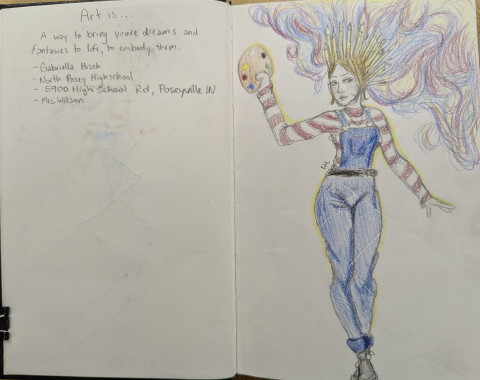 Art is....
A way to bring you're dreams and
fantasies to life, to embody them.
- Gabriella Hisch
- North Posey Highschool
- 5900 High School Rd, Poseyville IN
- Mrs. Wilson